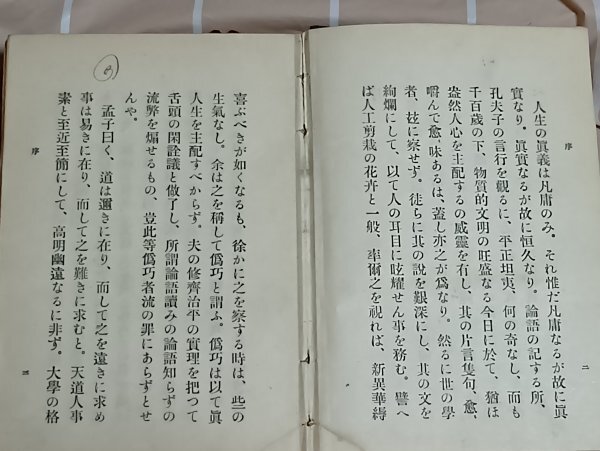 序
二
人生の眞義は凡庸のみ。それ惟だ凡庸なるが故に眞
實なり。眞實なるが故に恒久なり。論語の記する所、
孔夫子の言行を觀るに、平正坦夷、何の奇なし、而も
千百歳の下、物質的文明の旺盛なる今日に於て、猶ほ
盎然人心を主配するの威靈を有し、其の片言隻句、愈〻
嚼んで愈〻味あるは、蓋し亦之が爲なり。然るに世の學
者、玆に察せず。徒らに其の說を艱深にし、其の文を
絢爛にして、以て人の耳目に眩耀せん事を務む。譬へ
ば人工剪栽の花卉と一般、率爾之を視れば、新異華縟
喜ぶべきが如くなるも、徐かに之を察する時は、些の
生氣なし。余は之を稱して僞巧と謂ふ。僞巧は以て眞
人生を主配すべからず。夫の修齊治平の實理を把つて
舌頭の閑詮議と做了し、所謂論語讀みの論語知らずの
流弊を煽せるもの、豈此等僞巧者流の罪にあらずとせ
んや。
孟子曰く、道は邇きに在り、而して之を遠きに求め
事は易きに在り、而して之を難きに求むと。天道人事
素と至近至簡にして、高明幽遠なるに非ず。大學の格
序
三